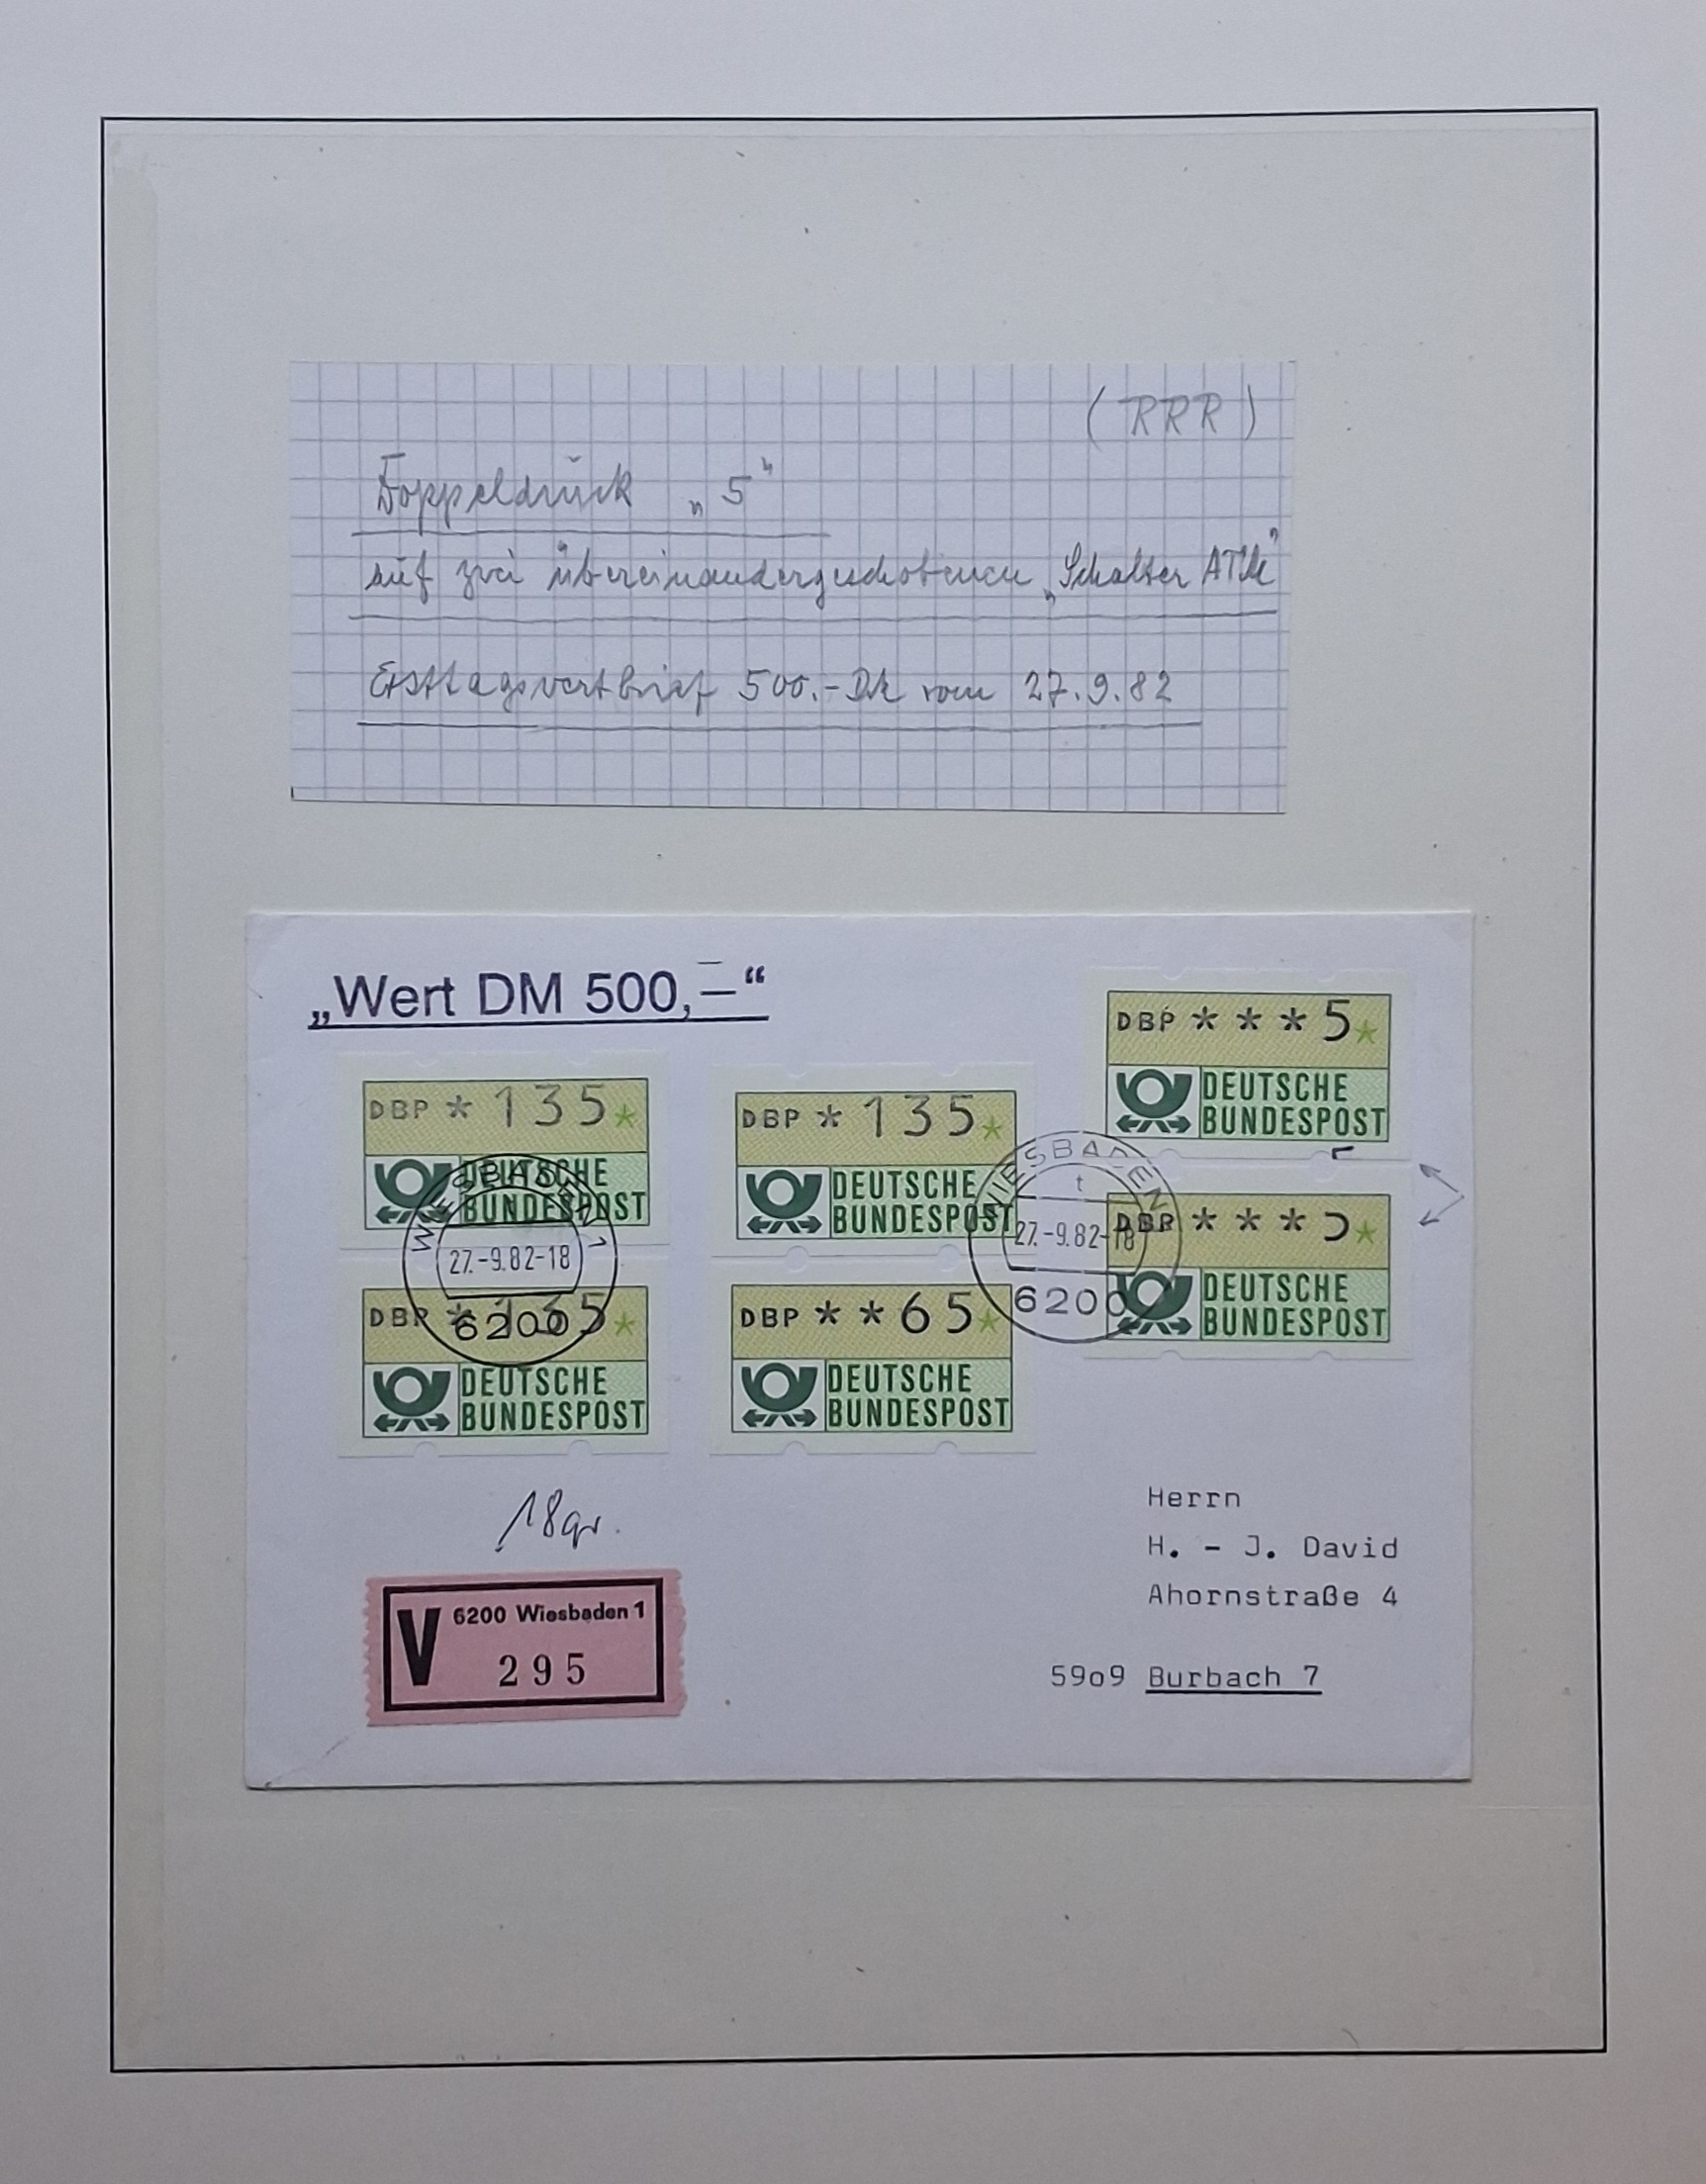 ( RRR )
Doppeldruck „5“
auf zwei übereinandergeschobenen „Schalter ATM“
Ersttagswertbrief 500.- DM vom 27.9.82
„Wert DM 500,—“
DBP * 135*
DEUTSCHE
BUNDESPOST
DBP * 135*
DEUTSCHE
BUNDESPOST
DBP * * * 5*
DEUTSCHE
BUNDESPOST
DBP * 135*
DEUTSCHE
BUNDESPOST
DBP * * 65*
DEUTSCHE
BUNDESPOST
DBP * * *
DEUTSCHE
BUNDESPOST
WIESBADEN 1
27.-9.82-18
6200
WIESBADEN
t
27.-9.82-18
6200
18gr.
V 6200 Wiesbaden 1
295
Herrn
H. - J. David
Ahornstraße 4
59o9 Burbach 7